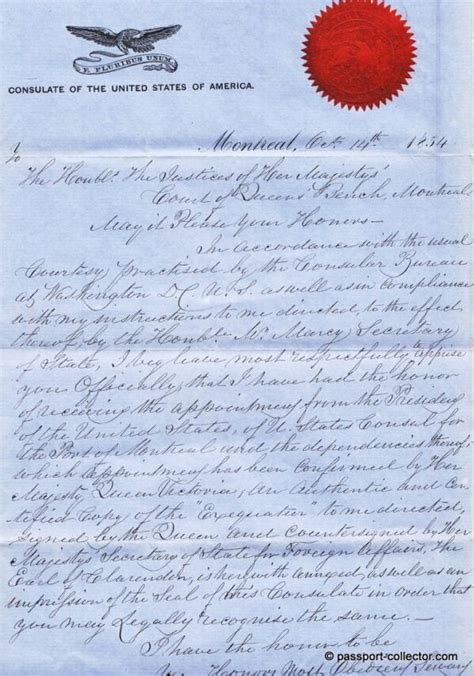 E. PLURIBUS UNUM
CONSULATE OF THE UNITED STATES OF AMERICA.
Montreal, Oct. 14th 1854
To
The Honbl. The Justices of Her Majestys'
Court of Queens' Bench, Montreal
May it Please your Honors—
In accordance with the usual
Courtesy practised by the Consular Bureau
at Washington D.C. U.S. as well as in compliance
with my instructions to me directed, to the effect
thereof, by the Honbl. Mr. Marcy, Secretary
of State, I beg leave most respectfully to apprise
you Officially, that I have had the honor
of receiving the appointment from the President
of the United States, of U. States Consul for
the Port of Montreal and the dependencies thereof;
which appointment has been confirmed by Her
Majesty Queen Victoria; an authentic and Cer-
tified Copy of the "Exequatur" to me directed,
signed by the Queen and countersigned by Her
Majestys' Secretary of State for Foreign Affairs, The
Earl of Clarendon, is herewith annexed, as well as an
impression of the Seal of this Consulate in order that
you may Legally recognise the same.—
I have the honor to be
Honors Most Obedient
© passport-collector.com